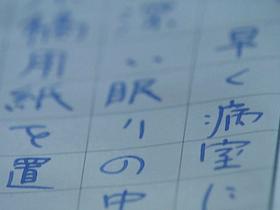 早く病室に
深い眠りの中
稿用紙を置